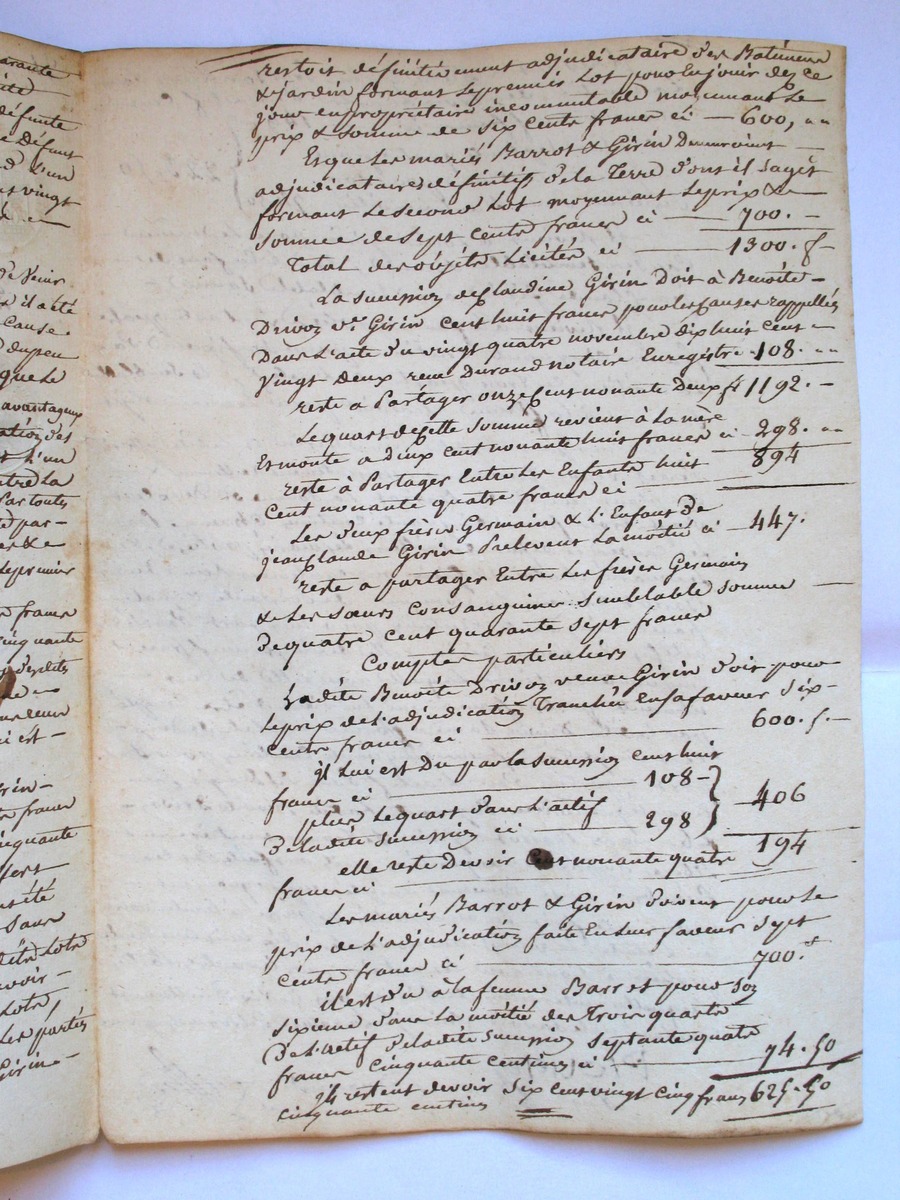 arante
défunte
Défunt
L'un
vingt
De Venir
il a été
Cause
Dupeu
que Le
avantageux
L'un
entre La
Par toutes
par-
Le premier
francs
cinquante
Leur
est-
rin-
francs
cinquante
sans
Lots
avoir-
Lots,
Les parties
Girin-
restoit définitivement adjudicataire des Batiments
& jardin formant Le premier Lot pour En jouir dez ce
jour en propriétaire incommutable moyennant Le
prix & somme de six cents francs ci — 600, "
Et que Les mariés Barrot & Girin Demeuroient
adjudicataires définitifs de la Terre dont il s'agit
formant Le second Lot moyennant Le prix &
somme de sept cents francs ci — 700. –
Total des objets Licités ci — 1300. f –
La succession de Claudine Girin Doit à Benoite –
Drivoz ve Girin cent huit francs pour les causes rappellées
Dans L'acte du vingt quatre novembre dix huit cent –
vingt Deux reçu Durand notaire Enregistré – 108. "
reste a Partager onze Cent nonante Deux f. 1192. –
Le quart de Cette somme revient à La mère
Et monte a Deux cent nonante huit francs ci – 298. "
reste à Partager Entre Les Enfants huit 894
cent nonante quatre francs ci
Les deux frères Germain & L'Enfant de
jean Claude Girin Prelevent La moitié ci – 447.
reste a partager Entre Les frères Germains
& Les sœurs Consanguines semblable somme
De quatre cent quarante sept francs
Comptes particuliers
Ladite Benoite Drivoz veuve Girin doit pour
Le prix de L'adjudication Tranchée en sa faveur six –
cents francs ci — 600. f. –
jl Lui est Du par la succession cent huit
francs ci — 108 –
plus Le quart dans L'actif 406
De ladite succession ci — 298
elle reste Devoir Cent nonante quatre 194
francs ci
Les mariés Barrot & Girin doivent pour Le
prix de L'adjudication faite En Leur faveur sept
cents francs ci — 700. f
il est du a la femme Barrot pour son
sixieme dans La moitié des Trois quarts
De L'actif De ladite succession septante quatre
francs cinquante centimes ci — 74. 50
jls restent devoir six cent vingt cinq francs 625. 50
cinquante centimes